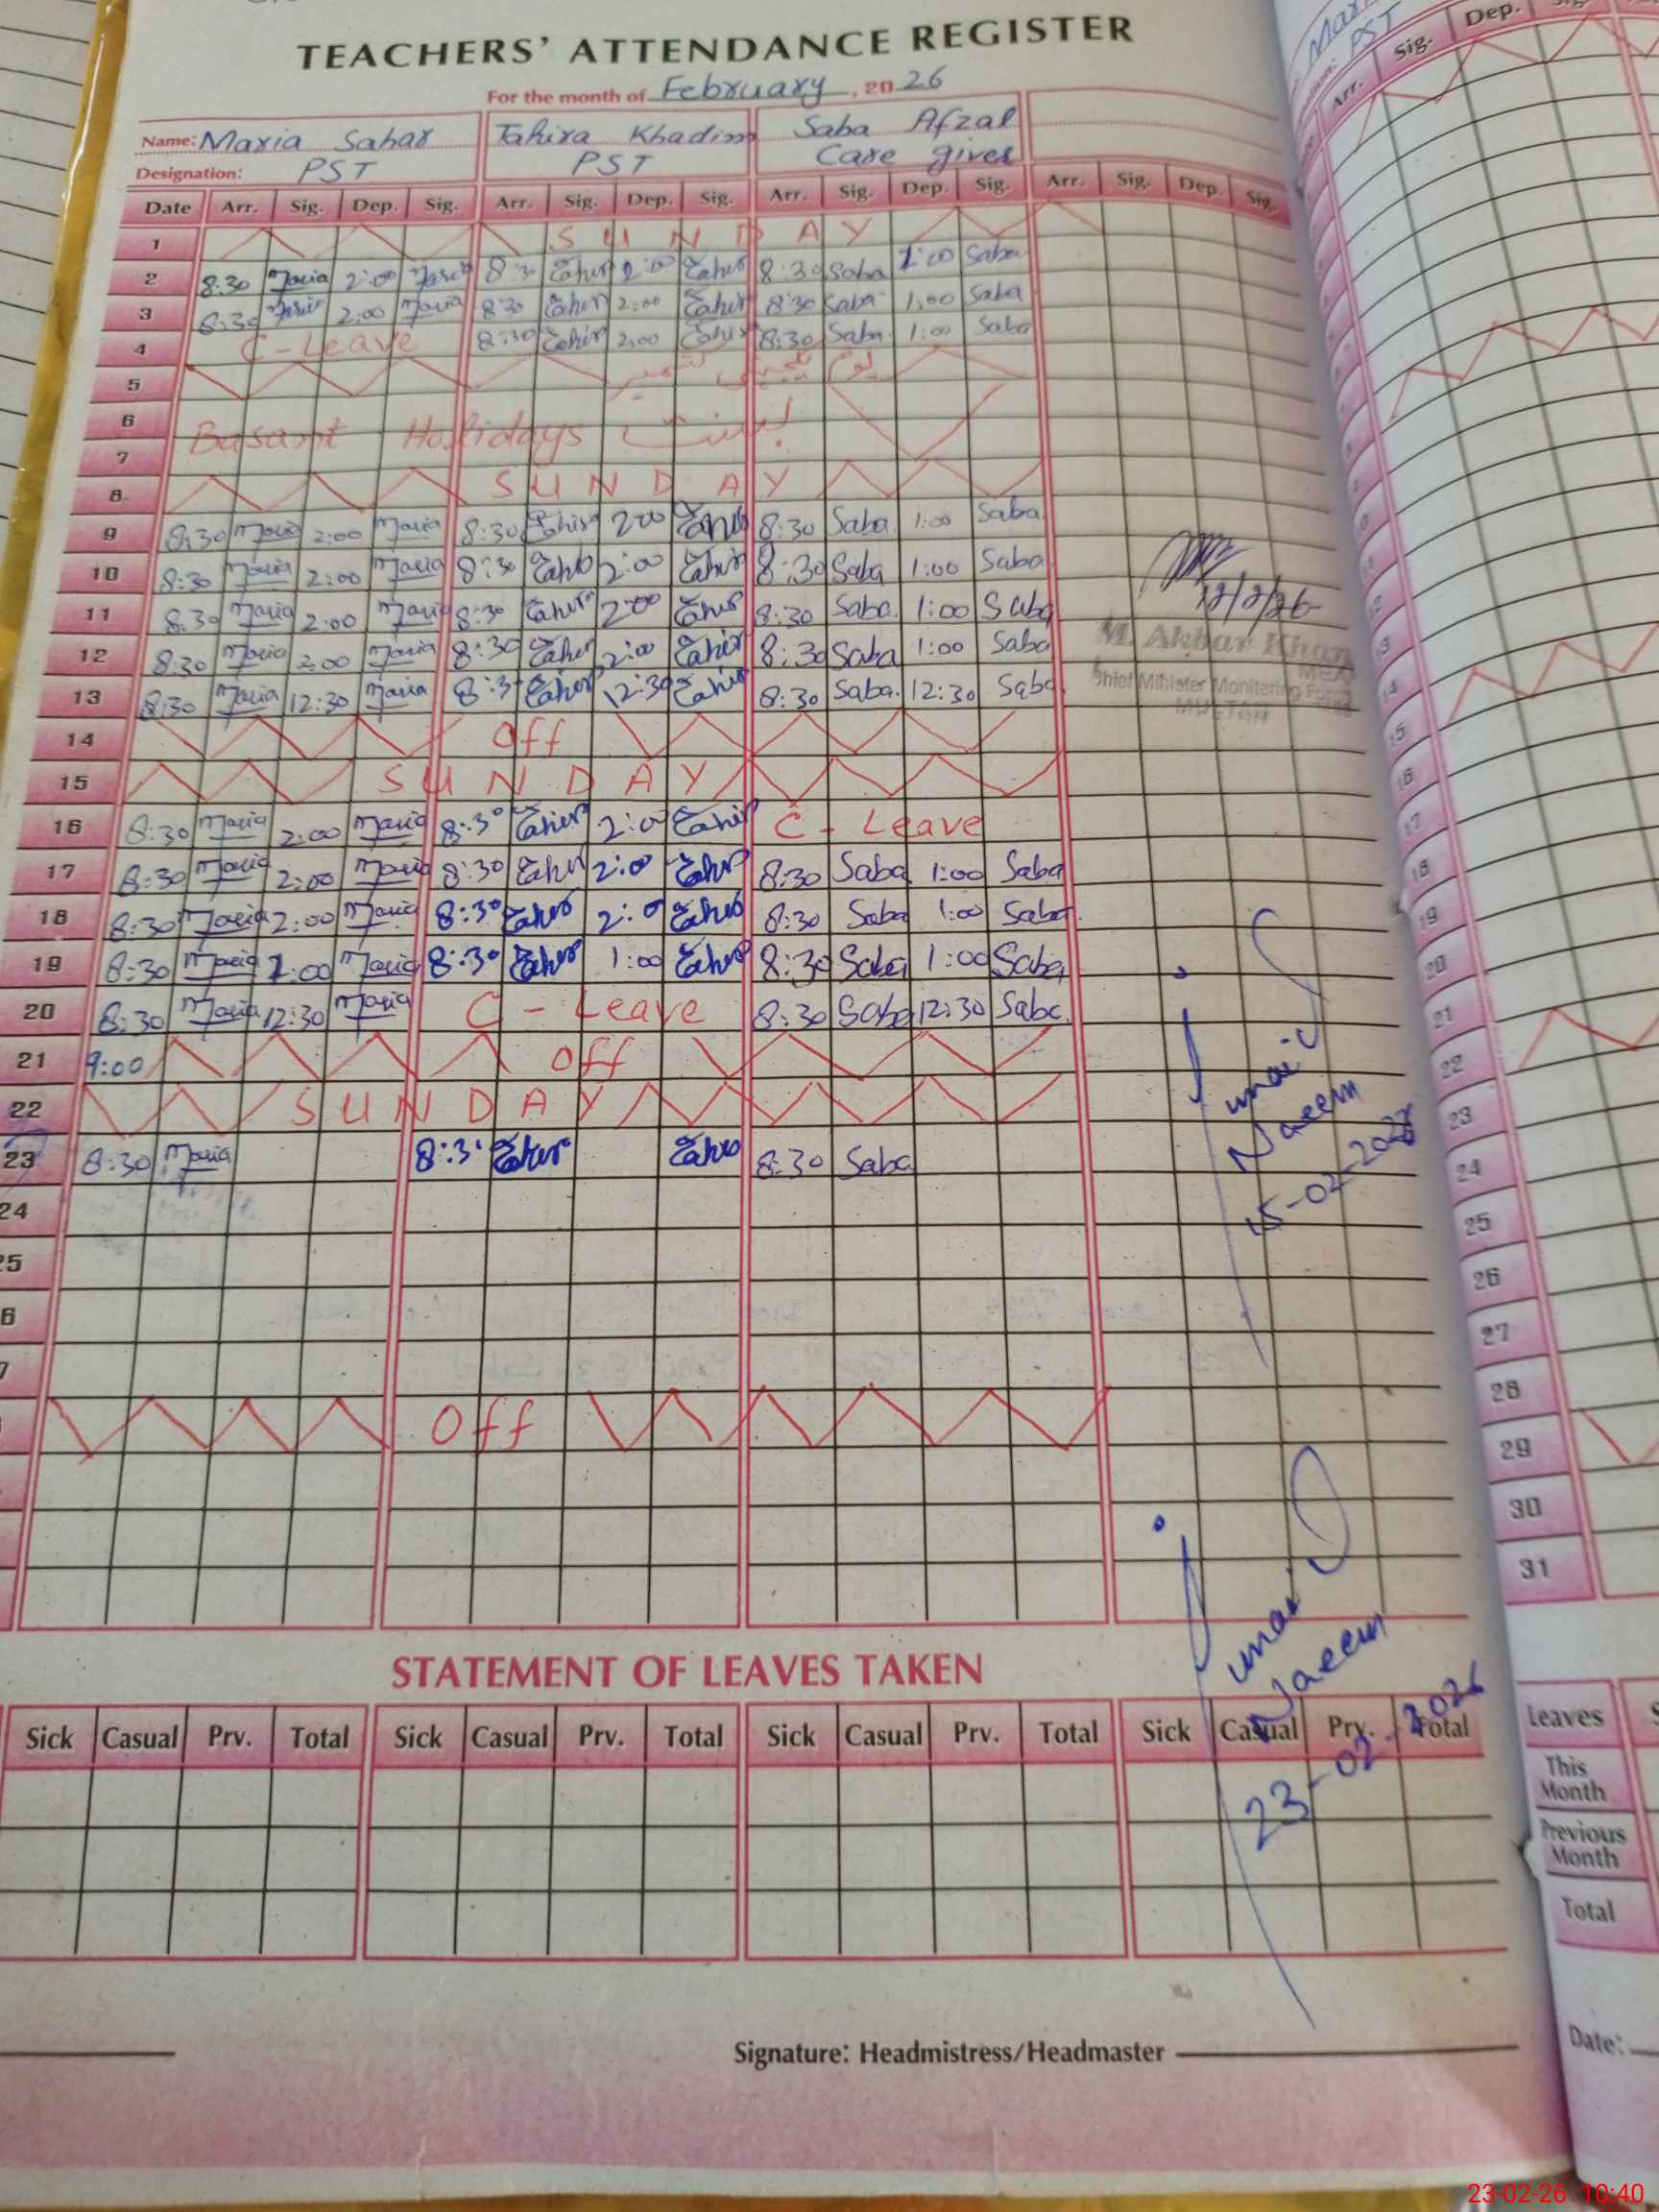 TEACHERS' ATTENDANCE REGISTER
For the month of February, 2026
Name: Maria Sahar Tahira Khadim Saba Afzal
Designation: PST PST Care giver
Date Arr. Sig. Dep. Sig. Arr. Sig. Dep. Sig. Arr. Sig. Dep. Sig. Arr. Sig. Dep. Sig.
1 SUNDAY
2 8:30 Maria 2:00 Maria 8:30 Tahir 2:00 Tahir 8:30 Saba 1:00 Saba
3 8:30 Maria 2:00 Maria 8:30 Tahir 2:00 Tahir 8:30 Saba 1:00 Saba
4 C-Leave 8:30 Tahir 2:00 Tahir 8:30 Saba 1:00 Saba
5 یوم یکجہتی کشمیر
6
Basant Holidays بسنت
7
8 SUNDAY
9 8:30 Maria 2:00 Maria 8:30 Tahir 2:00 Tahir 8:30 Saba 1:00 Saba
10 8:30 Maria 2:00 Maria 8:30 Tahir 2:00 Tahir 8:30 Saba 1:00 Saba
11 8:30 Maria 2:00 Maria 8:30 Tahir 2:00 Tahir 8:30 Saba 1:00 Saba
12 8:30 Maria 2:00 Maria 8:30 Tahir 2:00 Tahir 8:30 Saba 1:00 Saba
13 8:30 Maria 12:30 Maria 8:30 Tahir 12:30 Tahir 8:30 Saba 12:30 Saba
12/2/26
M. Akbar Khan
MEA
Chief Minister Monitering Force
MULTAN
14 Off
15 SUNDAY
16 8:30 Maria 2:00 Maria 8:30 Tahir 2:00 Tahir C-Leave
17 8:30 Maria 2:00 Maria 8:30 Tahir 2:00 Tahir 8:30 Saba 1:00 Saba
18 8:30 Maria 2:00 Maria 8:30 Tahir 2:00 Tahir 8:30 Saba 1:00 Saba
19 8:30 Maria 1:00 Maria 8:30 Tahir 1:00 Tahir 8:30 Saba 1:00 Saba
20 8:30 Maria 12:30 Maria C-Leave 8:30 Saba 12:30 Saba
21 9:00 Off
22 SUNDAY
23 8:30 Maria 8:30 Tahir Tahir 8:30 Saba
Junaid
Naeem
24
25
6
7
Off
Junaid
Naeem
23-02-2026
STATEMENT OF LEAVES TAKEN
Sick Casual Prv. Total Sick Casual Prv. Total Sick Casual Prv. Total Sick Casual Prv. Total
Signature: Headmistress/Headmaster
Maria
PST
Arr. Sig. Dep.
12
13
14
15
16
17
18
19
20
21
22
23
24
25
26
27
28
29
30
31
Leaves
This Month
Previous Month
Total
Date:
23-02-26 10:40